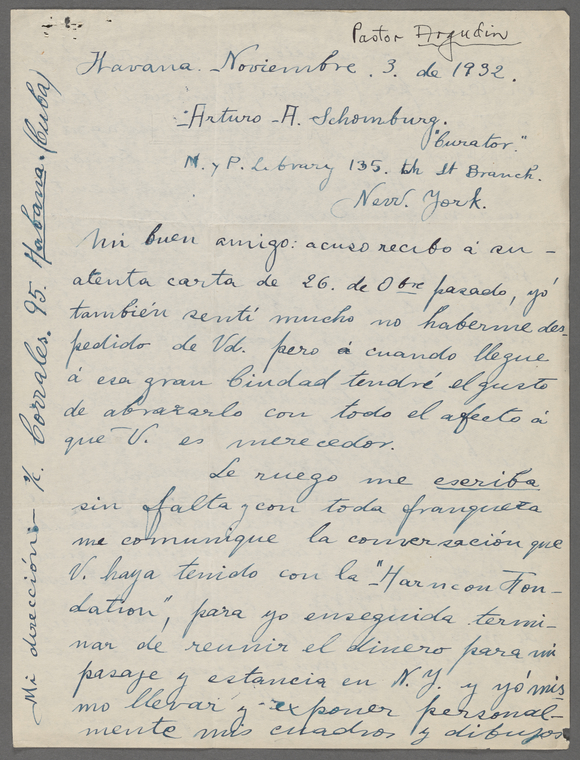 Pastor Argudin
Havana. Noviembre. 3. de 1932.
Arturo A. Schomburg.
"Curator."
N. y P. Library 135. th St Branch.
New. York.
Mi buen amigo: acuso recibo á su
atenta carta de 26. de Obre pasado, yó
también sentí mucho no haberme des-
pedido de Vd. pero á cuando llegue
á esa gran Ciudad tendré el gusto
de abrazarlo con todo el afecto á
que V. es merecedor.
Le ruego me escriba
sin falta y con toda franqueza
me comunique la conversación que
V. haya tenido con la "Harncon Fon-
dation", para yo enseguida termi-
nar de reunir el dinero para mi
pasaje y estancia en N.Y. y yó mis
mo llevar y exponer personal-
mente mis cuadros y dibujos
Mi dirección - Corrales. 95. Habana. (Cuba)